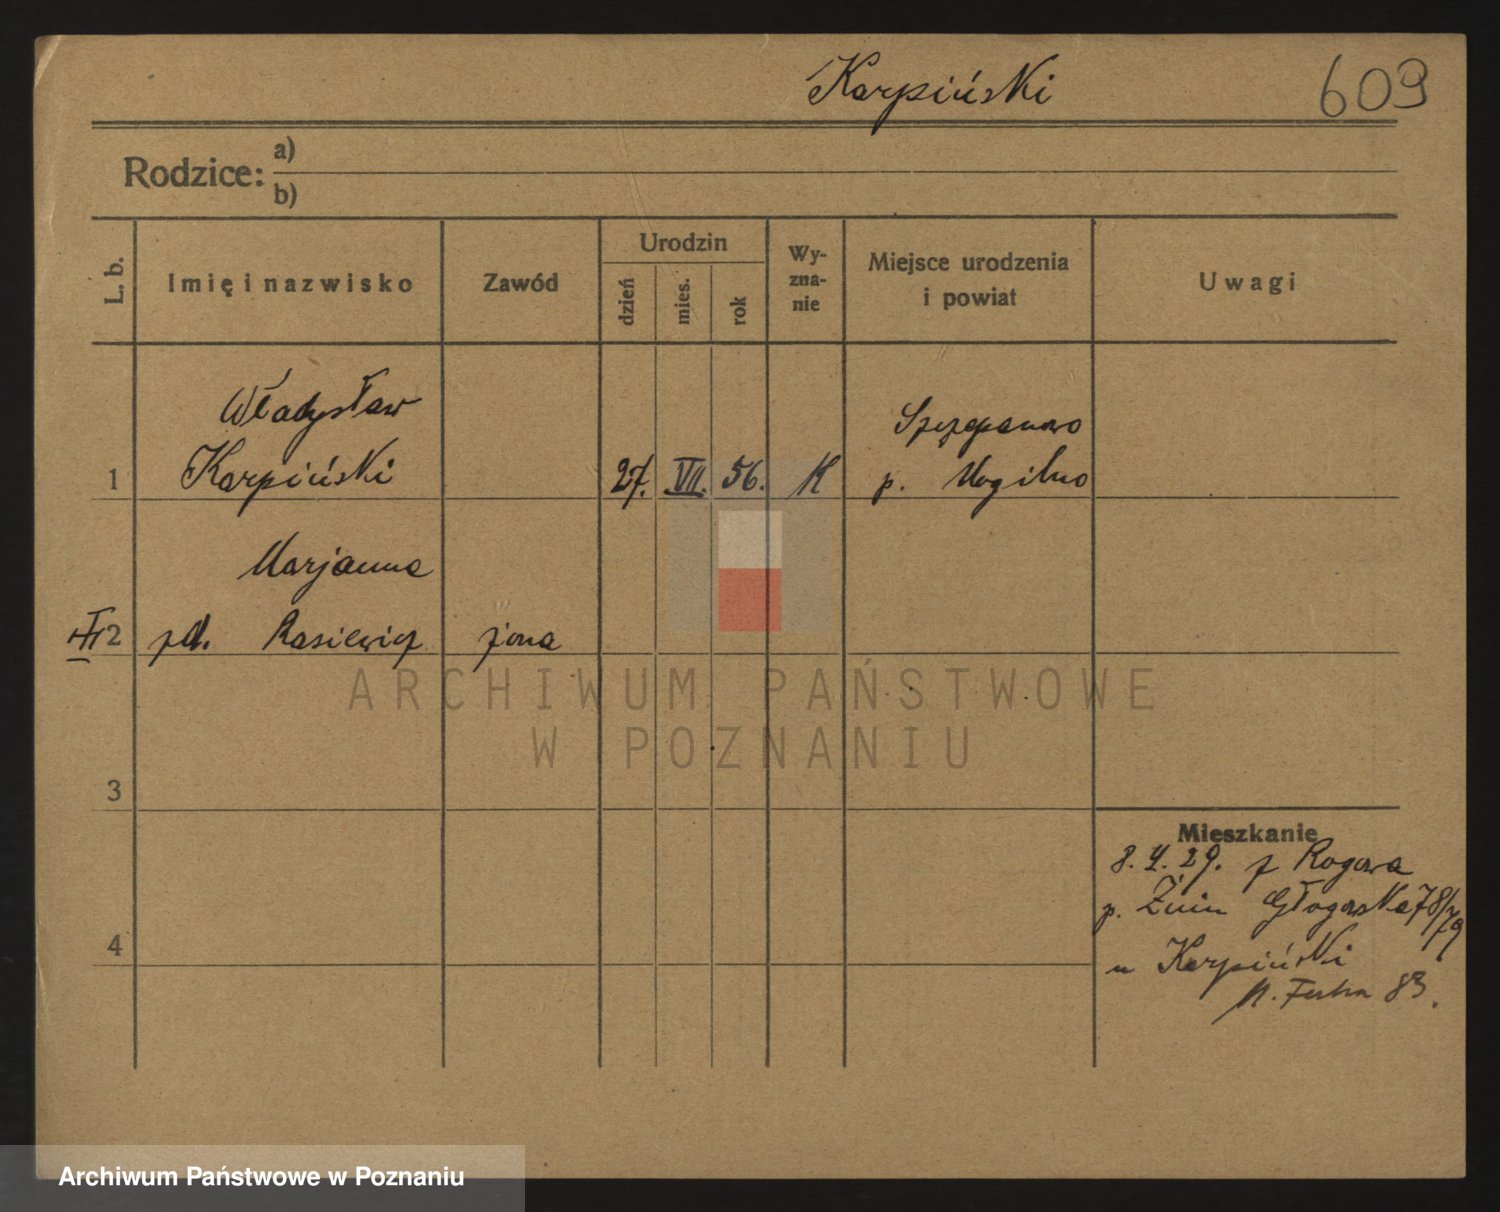 Karpiński 609
Rodzice: a)
b)
L. b. Imię i nazwisko Zawód Urodzin dzień mies. rok Wyznanie Miejsce urodzenia i powiat Uwagi
Władysław Szczepanowo
1 Karpiński 27. VII. 56. K p. Mogilno
Marjanna
2 zd. Rasiewicz żona
ARCHIWUM PAŃSTWOWE
W POZNANIU
3
Mieszkanie
8. 4. 29. z Rogowa
p. Żnin Głogowska 78/79
4
u Karpiński
83.
Archiwum Państwowe w Poznaniu